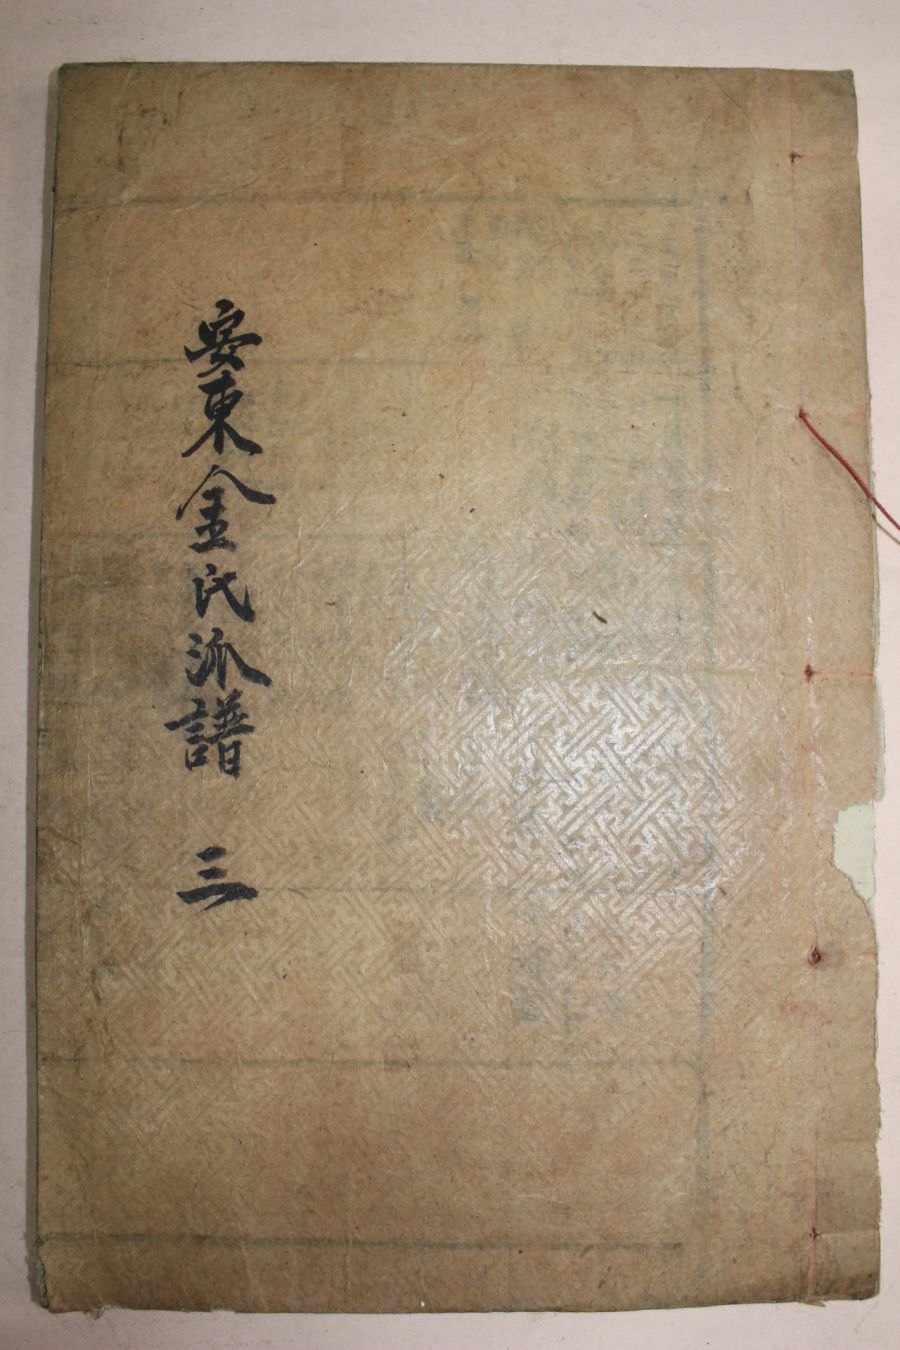 安東金氏派譜 三